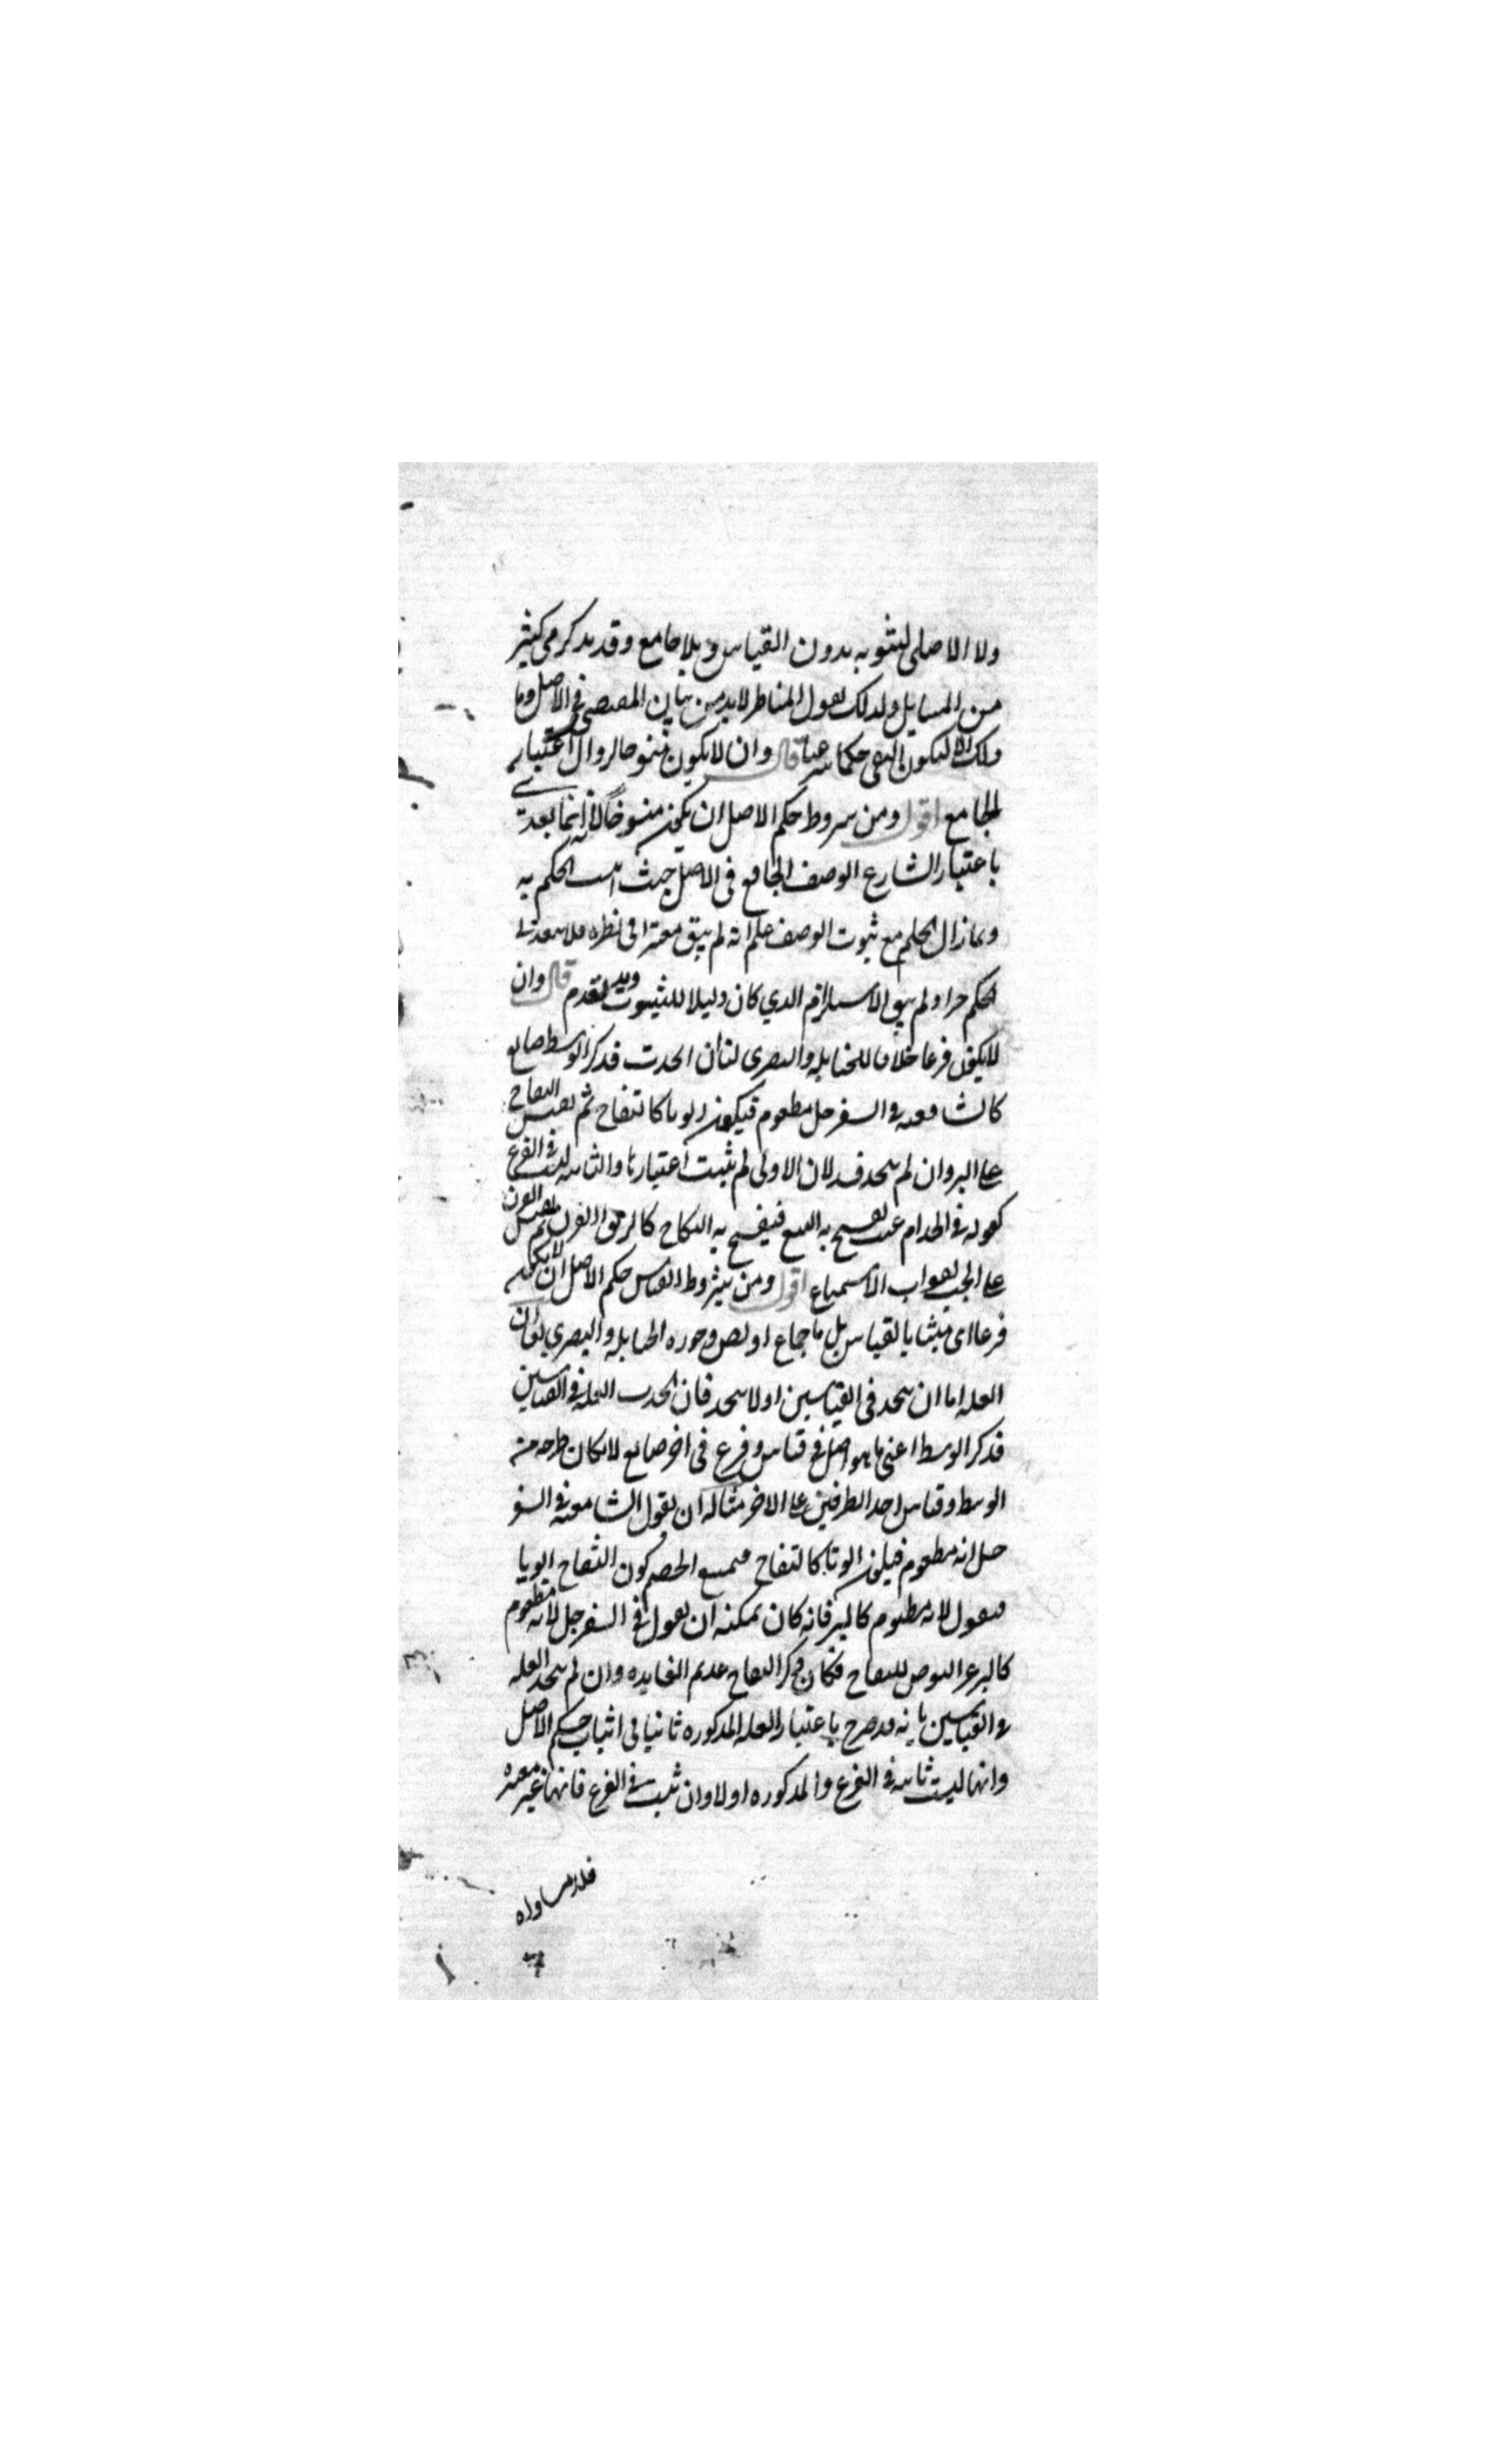 ولا الاصلى لثبوته بدون القياس وبلا جامع وقد يذكر فى كثير
من المسايل ولذلك يقول المناظر لابد من بيان المقتضى فى الاصل وما
ذلك الا ليكون النفى حكما شرعيا قال وان لا يكون منسوخا لزوال اعتبار
الجامع اقول ومن شروط حكم الاصل ان يكون منسوخا لانه انما يعدى
باعتبار الشارع الوصف الجامع فى الاصل حيث اثبت الحكم به
ولما زال الحكم مع ثبوت الوصف علم انه لم يبق معتبرا فى نظره فلا يتعدى
الحكم اذ لم يبق الاستلزام الذي كان دليلا للثبوت وقد تقدم قال وان
لا يكون فرعا خلافا للحنابلة والبصرى لنا ان اتحدت فذكر الوسط ضايع
كالشافعية فى السفرجل مطعوم فيكون ربويا كالتفاح ثم يقيس التفاح
على البر وان لم يتحد فسد لان الاولى لم يثبت اعتبارها والثانية ليست فى الفرع
كقوله فى الجذام عيب يفسخ به البيع فيفسخ به النكاح كالرتق والقرن ثم يقيس القرن
على الجب لفوات الاستمتاع اقول ومن شروط القياس حكم الاصل ان لا يكون
فرعا اى مثبتا بالقياس بل باجماع او نص وجوزه الحنابلة والبصرى لنا ان
العلة اما ان تتحد فى القياسين او لا تتحد فان اتحدت العلة فى القياسين
فذكر الوسط اعنى ما هو اصل فى قياس وفرع فى اخر ضايع لامكان طرحه من
الوسط وقياس احد الطرفين على الاخر مثاله ان يقول الشافعية فى السفر
جل انه مطعوم فيكون ربويا كالتفاح فيمنع الخصم كون التفاح ربويا
فيقول لانه مطعوم كالبر فانه كان يمكنه ان يقول فى السفرجل لانه مطعوم
كالبر من غير التعرض للتفاح فكان ذكر التفاح عديم الفايده وان لم تتحد العله
فى القياسين فانه قد صرح باعتبار العله المذكوره ثانيا فى اثبات حكم الاصل
وانها ليست ثابته فى الفرع والمذكوره اولا وان ثبتت فى الفرع فانها غير معتبره
فلا مساواه